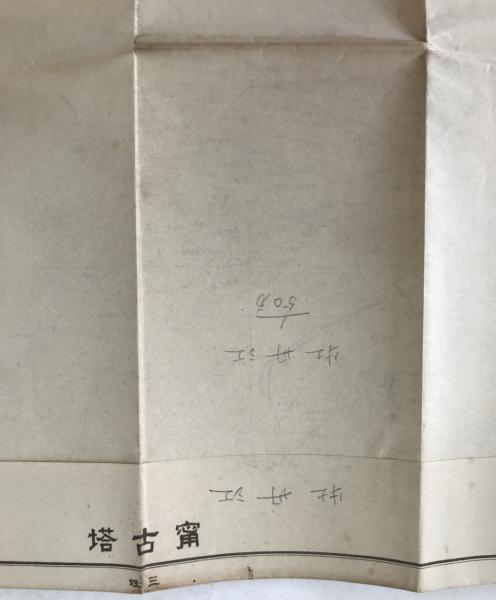 牡丹江
牡丹江
1/50万
甯古塔
三姓